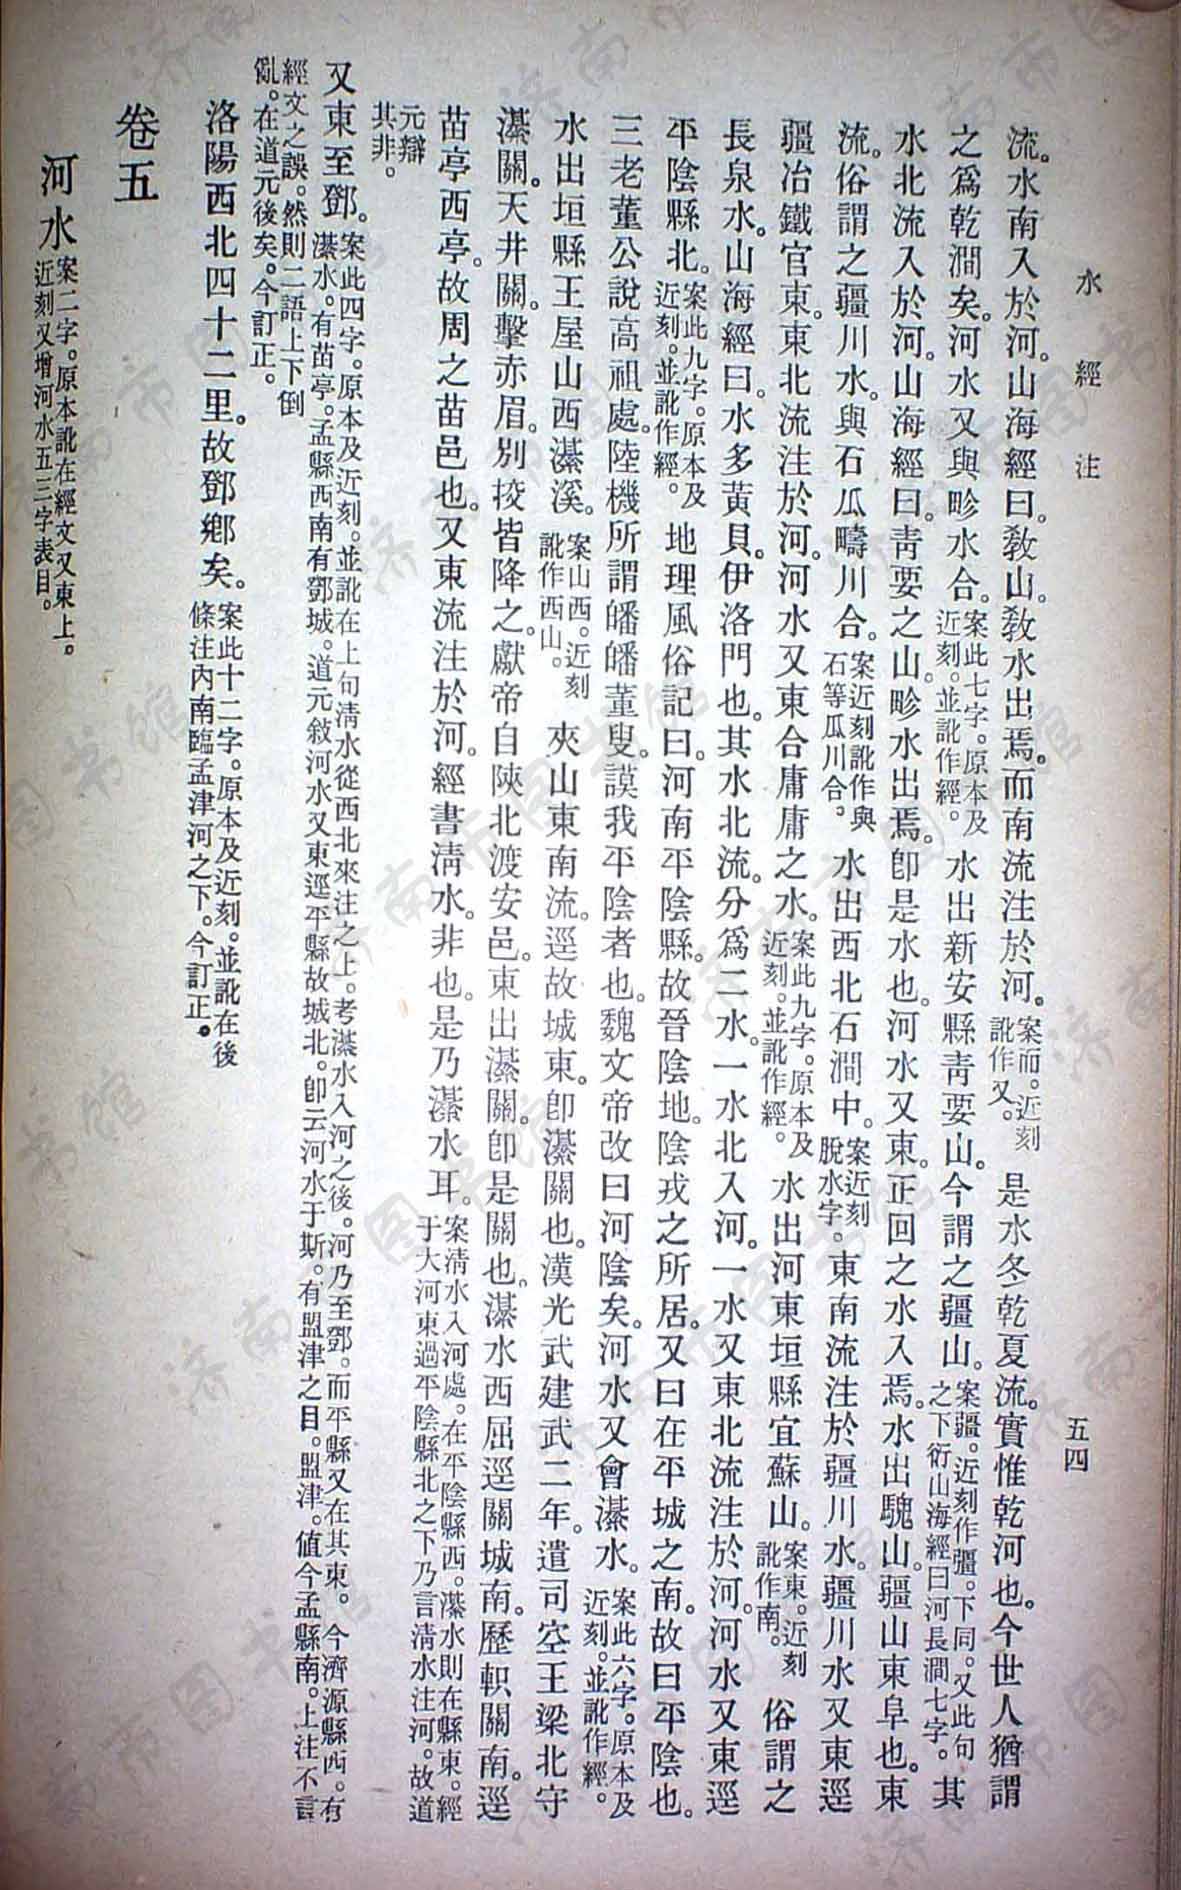 水經注
五四
流。水南入於河。山海經曰。敎山。敎水出焉。而南流注於河。案而。近刻訛作又。是水冬乾夏流。實惟乾河也。今世人猶謂
之爲乾澗矣。河水又與畛水合。案此七字。原本及近刻。並訛作經。水出新安縣靑要山。今謂之疆山。案疆。近刻作彊。下同。又此句之下衍山海經曰河長澗七字。其
水北流入於河。山海經曰。靑要之山。畛水出焉。卽是水也。河水又東。正回之水入焉。水出騩山。疆山東阜也。東
流。俗謂之疆川水。與石瓜疇川合。案近刻訛作與石等瓜川合。水出西北石澗中。案近刻脫水字。東南流注於疆川水。疆川水又東逕
疆冶鐵官東。東北流注於河。河水又東合庸庸之水。案此九字。原本及近刻。並訛作經。水出河東垣縣宜蘇山。案東。近刻訛作南。俗謂之
長泉水。山海經曰。水多黃貝。伊洛門也。其水北流。分爲二水。一水北入河。一水又東北流注於河。河水又東逕
平陰縣北。案此九字。原本及近刻。並訛作經。地理風俗記曰。河南平陰縣。故晉陰地。陰戎之所居。又曰在平城之南。故曰平陰也。
三老董公說高祖處。陸機所謂皤皤董叟。謨我平陰者也。魏文帝改曰河陰矣。河水又會濝水。案此六字。原本及近刻。並訛作經。
水出垣縣王屋山西濝溪。案山西。近刻訛作西山。夾山東南流。逕故城東。卽濝關也。漢光武建武二年。遣司空王梁北守
濝關。天井關。擊赤眉。別挍皆降之。獻帝自陝北渡安邑。東出濝關。卽是關也。濝水西屈逕關城南。歷軹關南。逕
苗亭西。亭。故周之苗邑也。又東流注於河。經書淸水。非也。是乃濝水耳。案淸水入河處。在平陰縣西。濝水則在縣東。經于大河東過平陰縣北之下乃言淸水注河。故道
元辯其非。
又東至鄧。案此四字。原本及近刻。並訛在上句淸水從西北來注之上。考濝水入河之後。河乃至鄧。而平縣又在其東。今濟源縣西。有濝水。有苗亭。孟縣西南有鄧城。道元敘河水又東逕平縣故城北。卽云河水于斯。有盟津之目。盟津。値今孟縣南。上注不言
經文之誤。然則二語上下倒亂。在道元後矣。今訂正。
洛陽西北四十二里。故鄧鄕矣。案此十二字。原本及近刻。並訛在後條注內南臨孟津河之下。今訂正。
卷五
河水案二字。原本訛在經文又東上。近刻又增河水五三字表目。